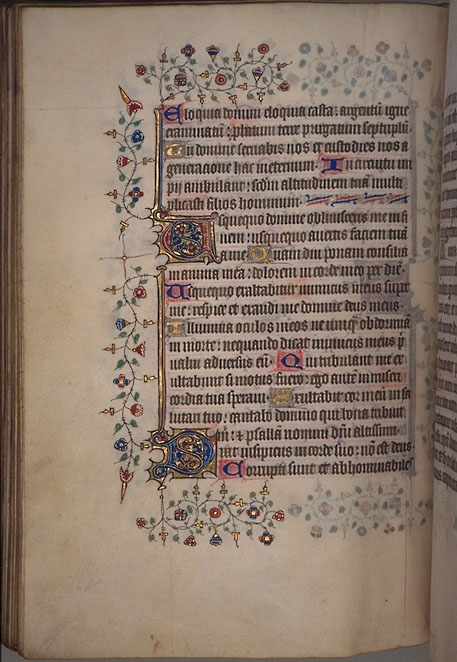 Eloquia domini eloquia casta: argentū igne
examinatū: probatum terre purgatum septuplū.
Tu domine seruabis nos et custodies nos a
generacione hac in eternum. In circuitu im
pij ambulant: scdm altitudinem tuā multi
plicasti filios hominum.
Usquequo domine obliuisceris me in fi
nem: usquequo auertis faciem tuā
a me Quam diu ponam consilia
in anima mea: dolorem in corde meo per diē.
Usquequo exaltabitur inimicus meus supr
me: respice et exaudi me domine deus meus.
Illumina oculos meos ne unqᷓ obdormiā
in morte: nequando dicat inimicus meus p̄
ualui aduersus eū. Qui tribulant me ex
ultabunt si motus fuero: ego autē in miseri
cordia tua speraui. Exultabit cor meū in sa
lutari tuo: cantabo domino qui bona tribuit
michi: et psallā nomini dn̄i altissimi.
Dixit insipiens in corde suo: nō est deus.
Corrupti sunt et abhominabiles